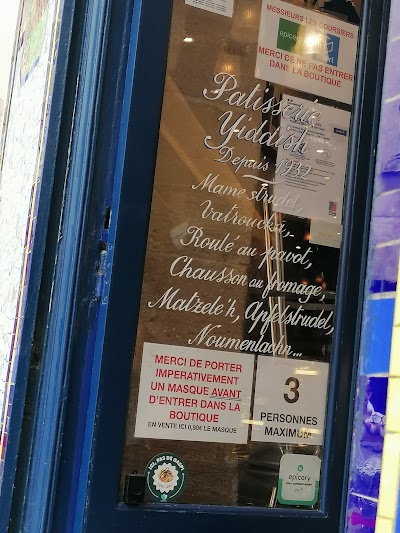 MESSIEURS LES COURSIERS
epicery
MERCI DE NE PAS ENTRER
DANS LA BOUTIQUE
Patisserie
Yiddish
Depuis 1932
Mame strudel,
Vatrouchka,
Roulé au pavot,
Chausson au fromage,
Matzele'h, Apfelstrudel,
Noumentachn...
MERCI DE PORTER
IMPERATIVEMENT
UN MASQUE AVANT
D'ENTRER DANS LA
BOUTIQUE
EN VENTE ICI 0,80€ LE MASQUE
3
PERSONNES
MAXIMUM
ICI, PAS DE GASPI
epicery